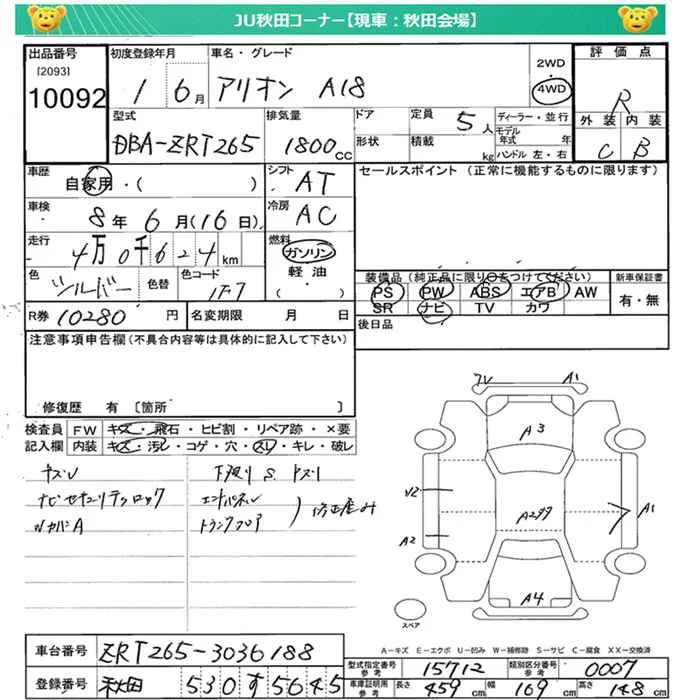 JU秋田コーナー【現車：秋田会場】
出品番号 [2093] 10092
初度登録年月 1 6月
車名・グレード アリオン A18
2WD 4WD
評価点 R
外装 C 内装 B
型式 DBA-ZRT265
排気量 1800cc
ドア 形状
定員 5人
積載 kg
ディーラー・並行
モデル年式 年
ハンドル 左・右
車歴 自家用・( )
シフト AT
セールスポイント (正常に機能するものに限ります)
車検 8年6月(16日)
冷房 AC
走行 4万0千624km
燃料 ガソリン 軽油 ( )
色 シルバー 色替 色コード 1F7
装備品(純正品に限り○をつけてください) 新車保証書
PS PW ABS エアB AW 有・無
SR ナビ TV カワ
R券 10280円 名変期限 月 日
後日品
注意事項申告欄(不具合内容等は具体的に記入して下さい)
修復歴 有 〔箇所 〕
検査員 FW キズ・飛石・ヒビ割・リペア跡・×要
記入欄 内装 キズ・汚し・コゲ・穴・スレ・キレ・破レ
ナビセキュリティロック
エンドパネル
トランクフロア
A3
A1
A2
A1
A4
スペア
A-キズ E-エクボ U-凹み W-補修跡 S-サビ C-腐食 XX-交換済
車台番号 ZRT265-3036188
型式指定番号 参考 15712 類別区分番号 参考 0007
登録番号 秋田 530 す 5645
車庫証明用 参考 長さ 459cm 幅 169cm 高さ 148cm